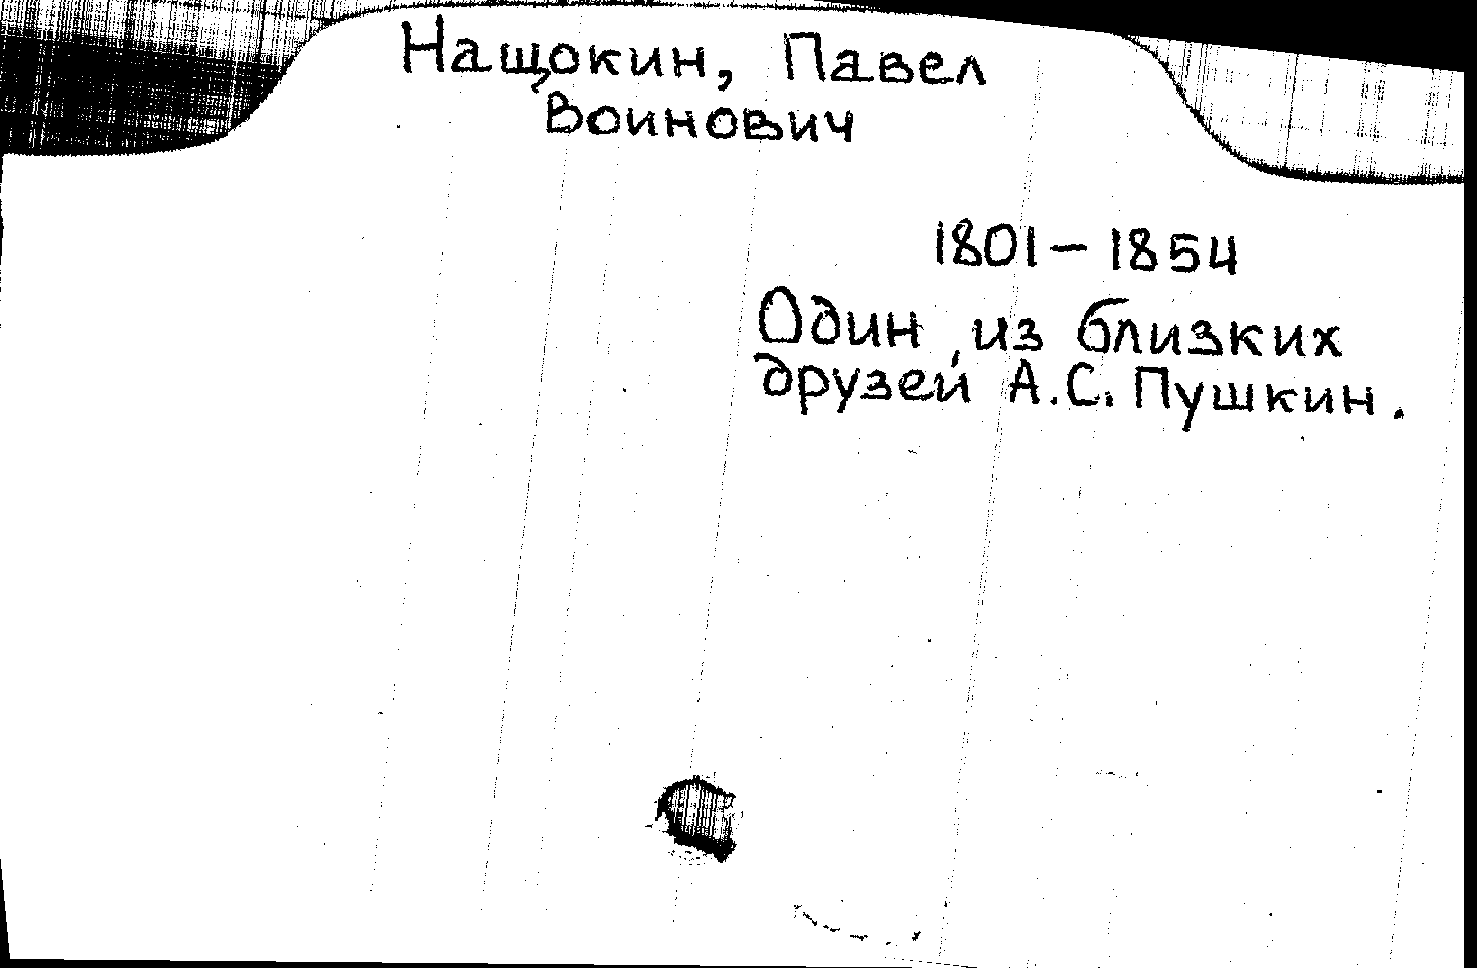 Нащокин, Павел
Воинович
1801 – 1854
Один из близких
друзей А.С. Пушкин.